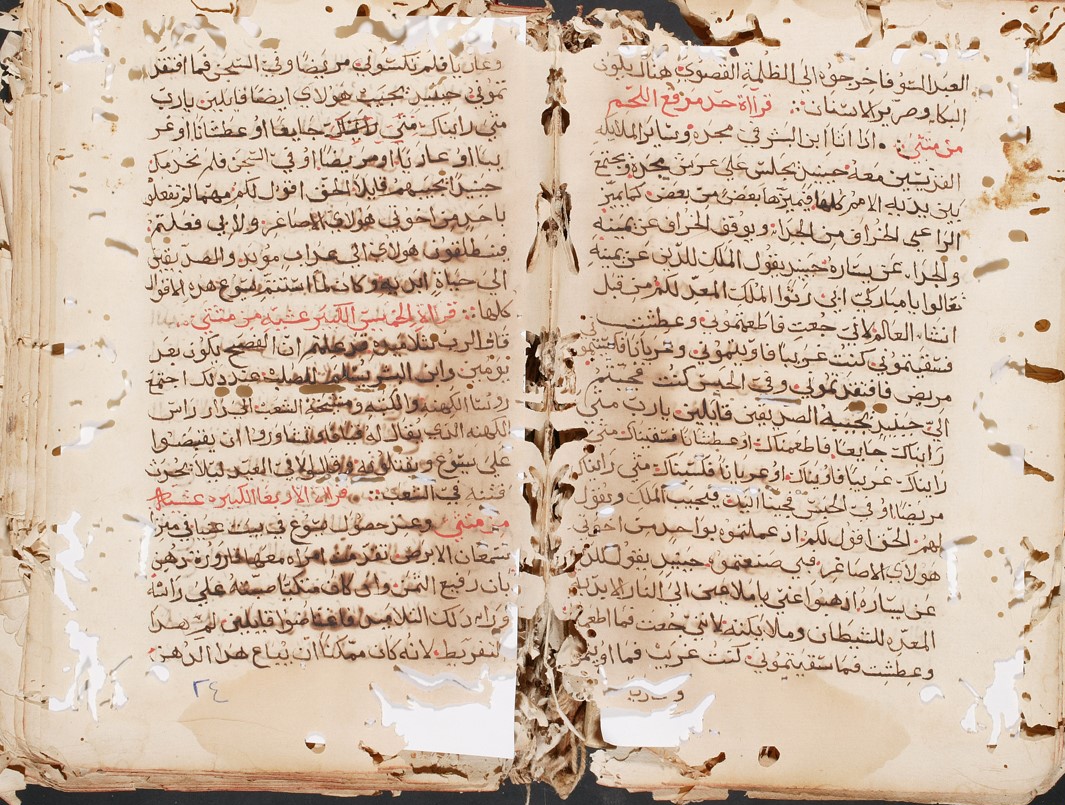 العبد السو فاخرجوه الى الظلمة القصوى هناك يكون
البكا وصرير الاسنان: قراة حد مرفع اللحم
من متى: اذا اتا ابن البشر في مجده وساير الملايكه
القديسين معه: حينيذ يجلس على عرش مجده: ويجتمع
بين يديه الامم كلها: فيميزها بعض من بعض: كما يميز
الراعي الخراف من الجدا: ويوقف الخراف عن يمينه
والجدا عن يساره: حينيذ يقول الملك للذين عن يمينه
تعالوا يا مباركي ابي: رثوا الملك المعد لكم من قبل
انشا العالم: لاني جعت فاطعمتموني: وعطشت
فسقيتموني: كنت غريبا فاويتموني: وعريانا فكسيتموني
مريض فافتقدتموني: وفي الحبس كنت فجيتم
الي: حينيذ يجيبه الصديقين قايلين: يا رب متى
رايناك جايعا: فاطعمناك: او عطشانا فسقيناك: متى
رايناك غريبا فاويناك: او عريانا فكسيناك: متى رايناك
مريضا او في الحبس فجينا اليك: فيجيب الملك ويقول
لهم: الحق اقول لكم: اذ عملتموه بواحد من اخوتي
هولاي الاصاغر: فبي صنعتموه: حينيذ يقول للذين
عن يساره اذهبوا عني يا ملاعين الى النار الابديه
المعده للشيطان وملايكته: لاني جعت فما اطعم
وعطشت فما سقيتموني: كنت غريب فما اويتمو
وعريا
وعاريا فلم تكسوني: مريضا وفي السجن فما افتقد
تموني: حينيذ يجيب هولاي ايضا قايلين: يا رب
متى رايناك جايعا: او عطشانا: او غر
يبا: او عاريا: او مريضا: او في السجن فلم نخدمك
حينيذ يجيبهم قايلا: الحق اقول لكم: مهما لم تفعلو
باحد من اخوتي هولاي الاصاغر: ولا بي فعلتم:
فينطلقون هولاي الى عذاب موبد: والصديقين
الى حياة ابديه: وكان لما استتم يسوع هذه الاقوال
كلها: قراة الخميس الكبير عشيه من متى:
قال الرب لتلاميذه قد علمتم ان الفصح يكون بعد
يومين وابن البشر يسلم للصلب: عند ذلك اجتمع
روسا الكهنه والكتبه ومشيخة الشعب الى دار راس
الكهنه الذي يقال له قيافا: وتشاوروا ان يقبضوا
على يسوع ويقتلوه: وقالوا لا في العيد ليلا يحدث
فتنه في الشعب: قراة الاربعا الكبيره عشيه
من متى: وعند حصول يسوع في بيت عنيا في منزل
سمعان الابرص: تقدمت امراه معها قارورة دهن
بان رفيع الثمن: واذ كان متكيا صبته على راسه
فراء ذلك التلاميذ فاغتاضوا قايلين لم هذا
التفريط: لانه كان ممكنا ان يباع هذا الدهن:
٢٤